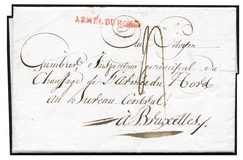 ARM. DU NORD
Au Citoyen
Cambier Inspecteur principal du
Chauffage de l'armée du Nord
au Bureau Central
à Bruxelles